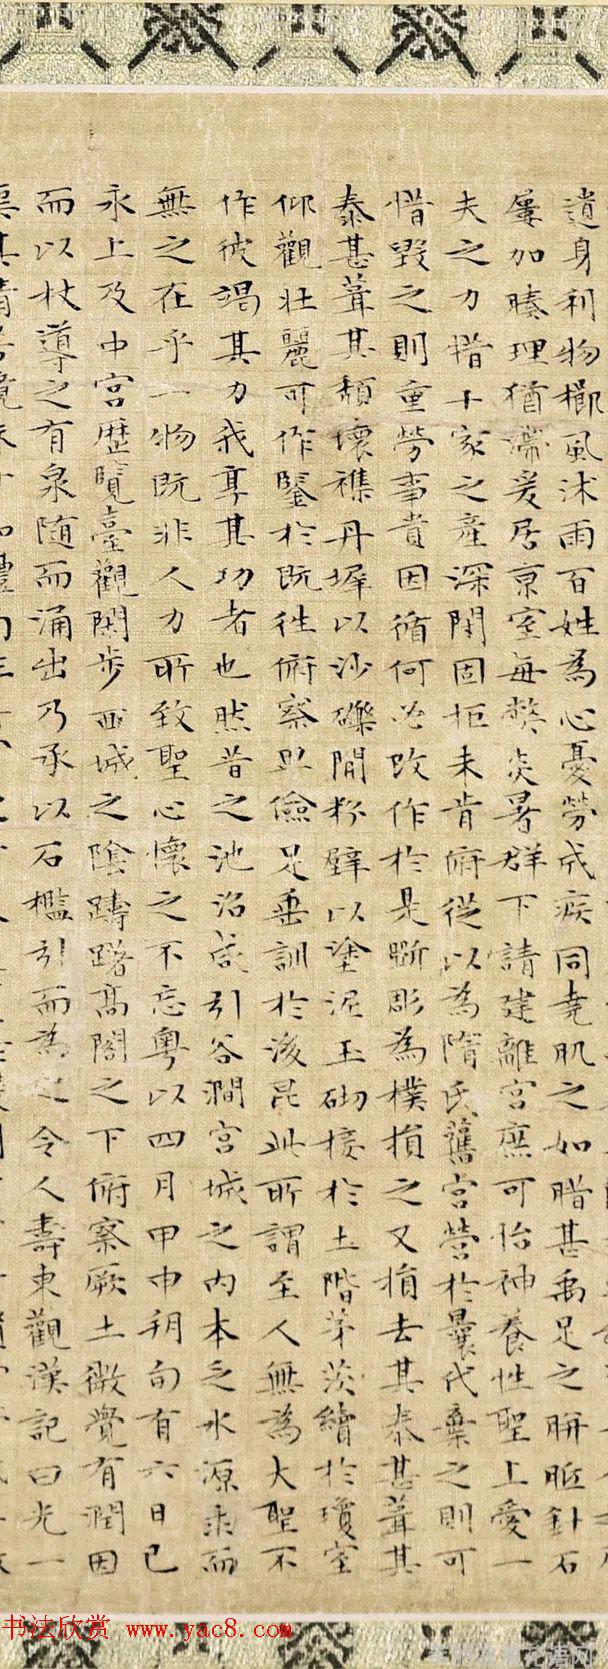 遺身利物櫛風沐雨百姓為心憂勞成疾同堯肌之如腊甚禹足之胼胝針石
屢加腠理猶滯爰居京室每弊炎暑群下請建離宮庶可怡神養性聖上愛一
夫之力惜十家之產深閉固拒未肯俯從以為隋氏舊宮營於曩代棄之則可
惜毀之則重勞事貴因循何必改作於是斲彫為樸損之又損去其泰甚葺其
泰甚葺其頹壞襍丹墀以沙礫間粉壁以塗泥玉砌接於土階茅茨續於瓊室
仰觀壯麗可作鑒於既往俯察卑儉足垂訓於後昆此所謂至人無為大聖不
作彼竭其力我享其功者也然昔之池沼咸引谷澗宮城之内本乏水源求而
無之在乎一物既非人力所致聖心懷之不忘粵以四月甲申朔旬有六日己
永上及中宮歷覽臺觀閑步西城之陰躊躇高閣之下俯察厥土微覺有潤因
而以杖導之有泉隨而涌出乃承以石檻引而為之令人壽東觀漢記曰光一
书法欣赏 www.yac8.com